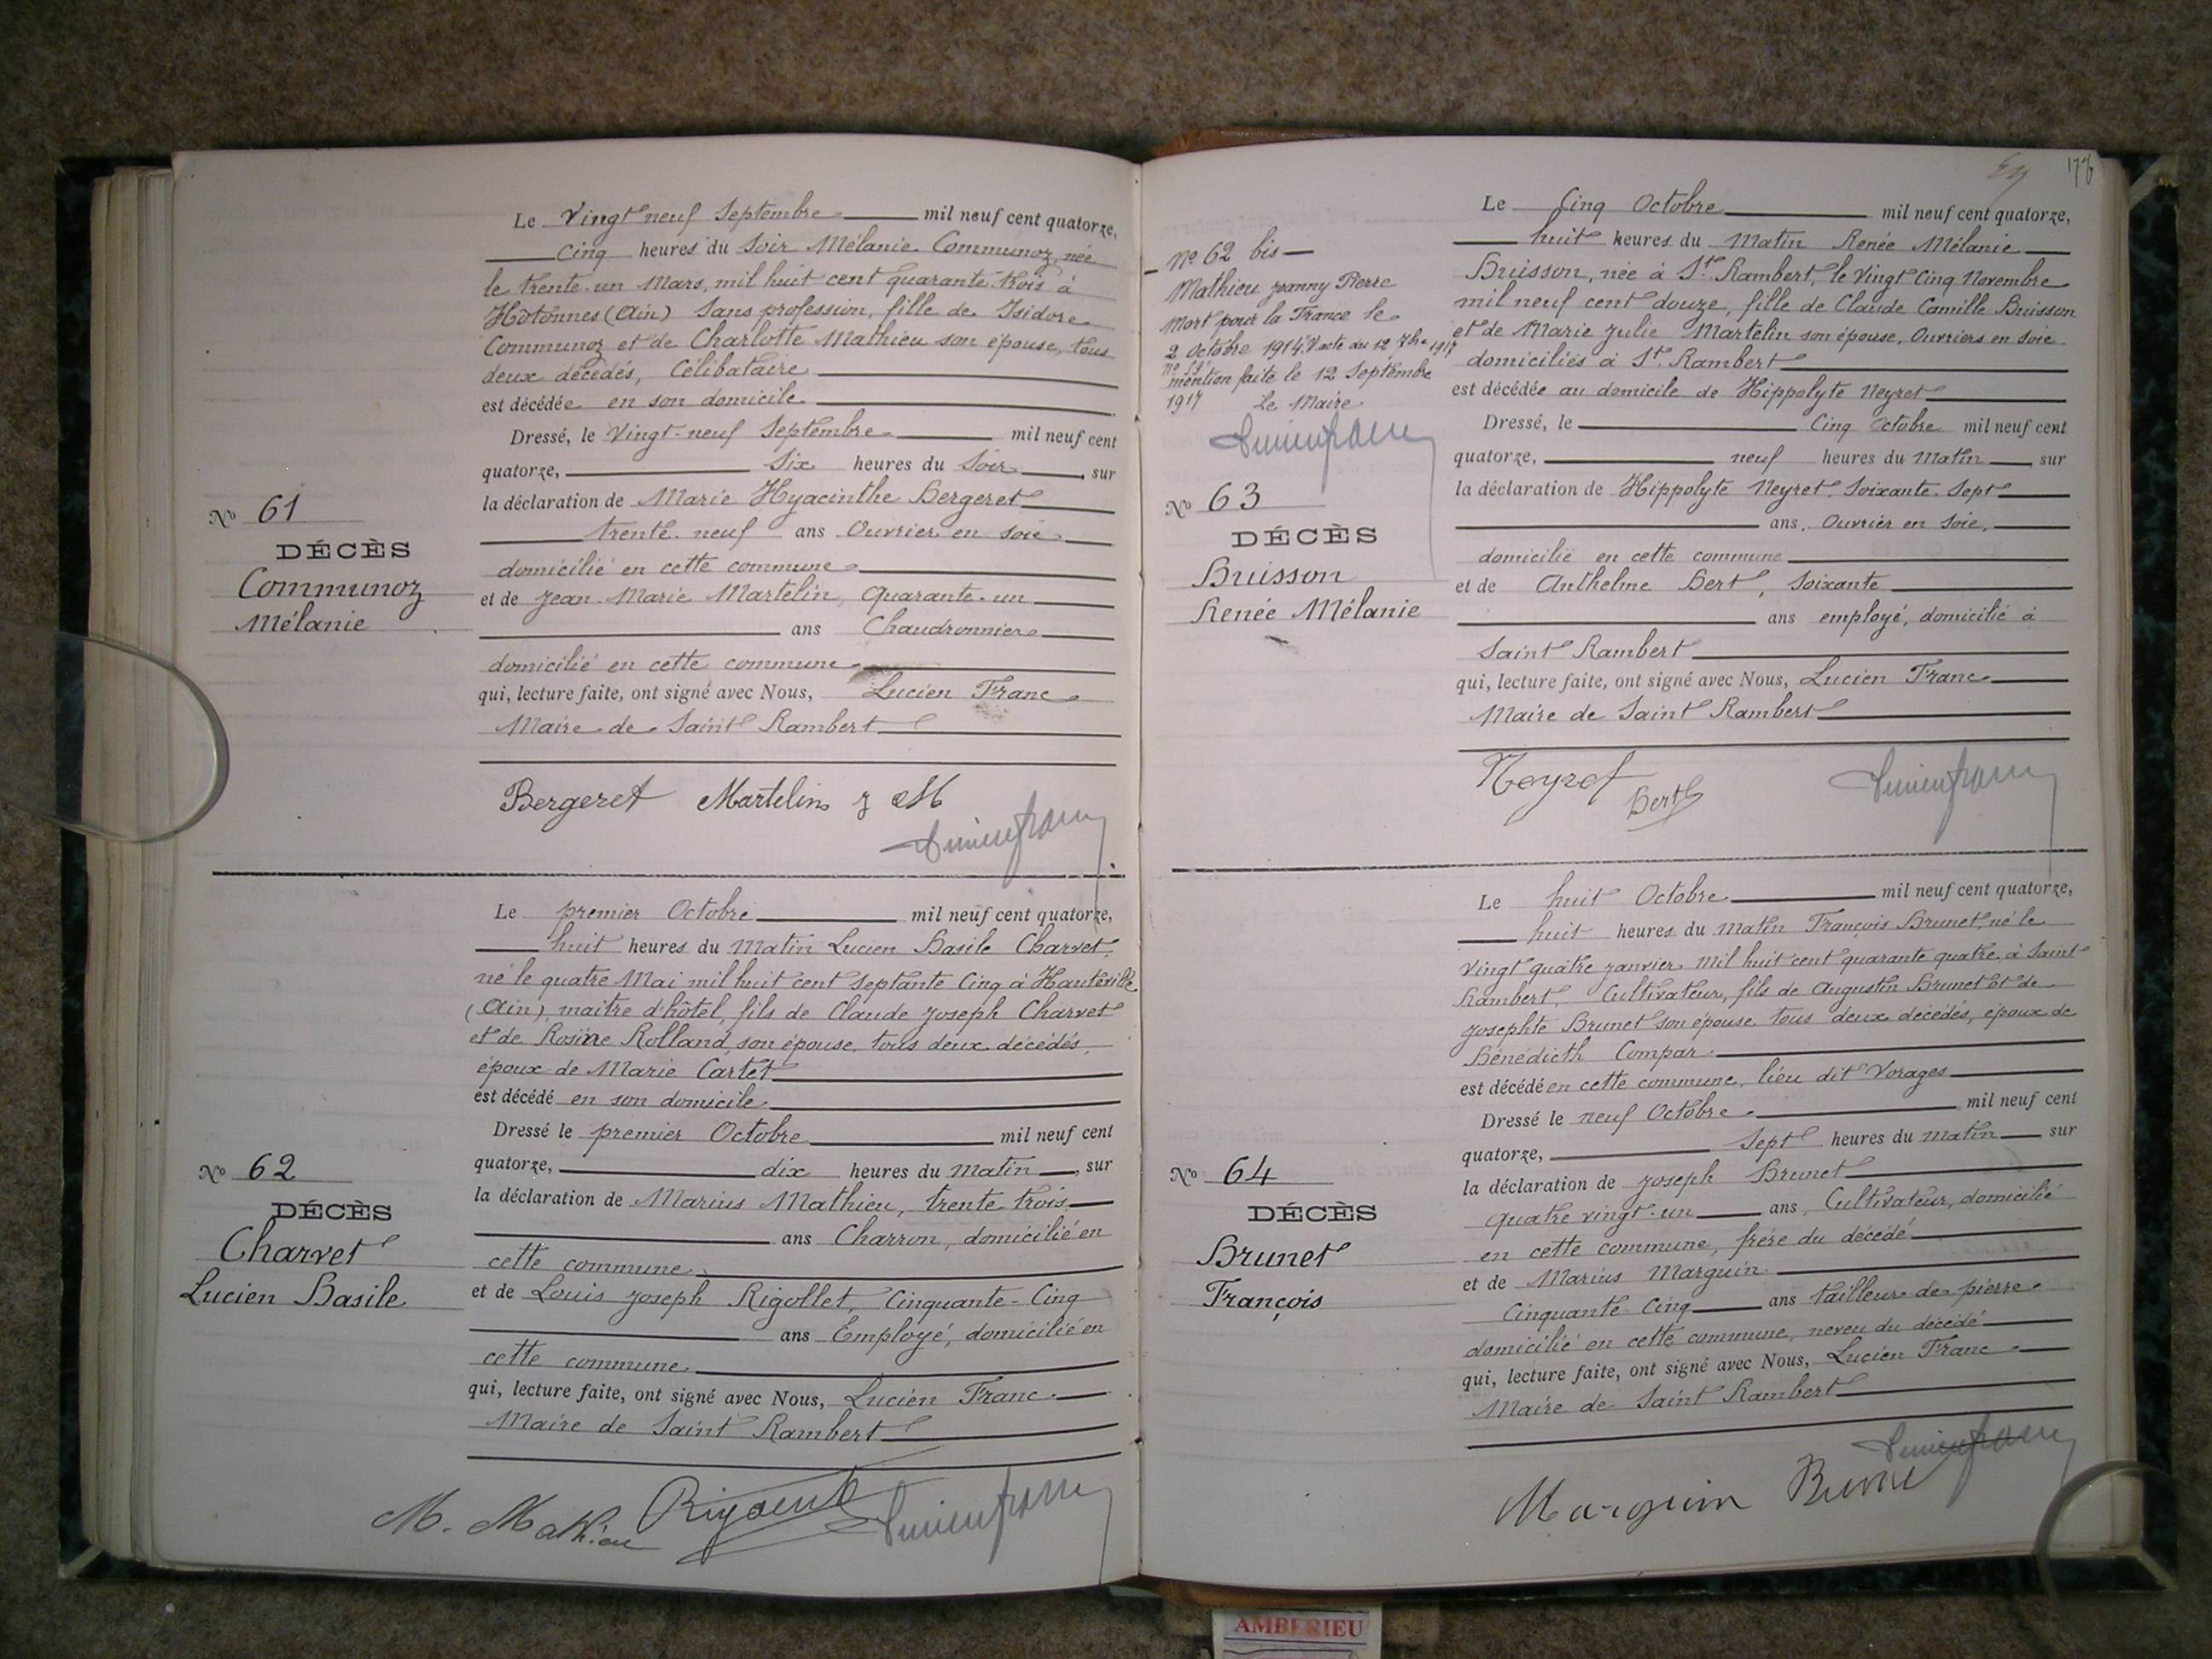 Le Vingt neuf Septembre mil neuf cent quatorze,
Cinq heures du Soir Mélanie Communoz, née
le trente-un Mars, mil huit cent quarante-trois à
Hotonnes (Ain) Sans profession, fille de Isidore
Communoz et de Charlotte Mathieu son épouse, tous
deux décédés, Célibataire
est décédée en son domicile
Dressé, le Vingt-neuf Septembre mil neuf cent
quatorze, Six heures du Soir, sur
la déclaration de Marie Hyacinthe Bergeret
trente-neuf ans Ouvrier en soie
domicilié en cette commune
et de Jean-Marie Martelin, Quarante-un
ans Chaudronnier
domicilié en cette commune
qui, lecture faite, ont signé avec Nous, Lucien Franc
Maire de Saint Rambert
No 61
DÉCÈS
Communoz
Mélanie
Bergeret Martelin J M
Lucien Franc
Le premier Octobre mil neuf cent quatorze,
huit heures du Matin Lucien Basile Charvet,
né le quatre Mai mil huit cent septante Cinq à Hauteville
(Ain), maitre d'hôtel, fils de Claude Joseph Charvet
et de Rosine Rolland, son épouse, tous deux décédés,
époux de Marie Cartet
est décédé en son domicile
Dressé le premier Octobre mil neuf cent
quatorze, dix heures du Matin, sur
la déclaration de Marius Mathieu, trente-trois
ans Charron, domicilié en
cette commune
et de Louis Joseph Rigollet, Cinquante-Cinq
ans Employé, domicilié en
cette commune
qui, lecture faite, ont signé avec Nous, Lucien Franc
Maire de Saint Rambert
No 62
DÉCÈS
Charvet
Lucien Basile
M. Mathieu Lucien Franc
176
No 62 bis
Mathieu Joanny Pierre
Mort pour la France le
2 Octobre 1914. V. acte du 12 7bre 1917
No 59
mention faite le 12 Septembre
1917 Le Maire
Lucien Franc
Le Cinq Octobre mil neuf cent quatorze,
huit heures du Matin Renée Mélanie
Buisson, née à St Rambert, le Vingt Cinq Novembre
mil neuf cent douze, fille de Claude Camille Buisson
et de Marie Julie Martelin son épouse, Ouvriers en soie
domiciliés à St Rambert
est décédée au domicile de Hippolyte Neyret
Dressé, le Cinq Octobre mil neuf cent
quatorze, neuf heures du Matin, sur
la déclaration de Hippolyte Neyret, Soixante-Sept
ans, Ouvrier en Soie,
domicilié en cette commune
et de Anthelme Bert, Soixante
ans employé, domicilié à
Saint Rambert
qui, lecture faite, ont signé avec Nous, Lucien Franc
Maire de Saint Rambert
No 63
DÉCÈS
Buisson
Renée Mélanie
Neyret Bert Lucien Franc
Le huit Octobre mil neuf cent quatorze,
huit heures du Matin François Brunet, né le
vingt quatre janvier mil huit cent quarante quatre à Saint
Rambert, Cultivateur, fils de Augustin Brunet et de
Josephte Brunet son épouse, tous deux décédés, époux de
Bénédicth Compar
est décédé en cette commune, lieu dit Vorages
Dressé le neuf Octobre mil neuf cent
quatorze, Sept heures du matin sur
la déclaration de Joseph Brunet
quatre vingt-un ans, Cultivateur, domicilié
en cette commune, frère du décédé
et de Marius Marguin
Cinquante Cinq ans tailleur de pierre
domicilié en cette commune, neveu du décédé
qui, lecture faite, ont signé avec Nous, Lucien Franc
Maire de Saint Rambert
No 64
DÉCÈS
Brunet
François
Lucien Franc
Marguin Brunet
AMBERIEU